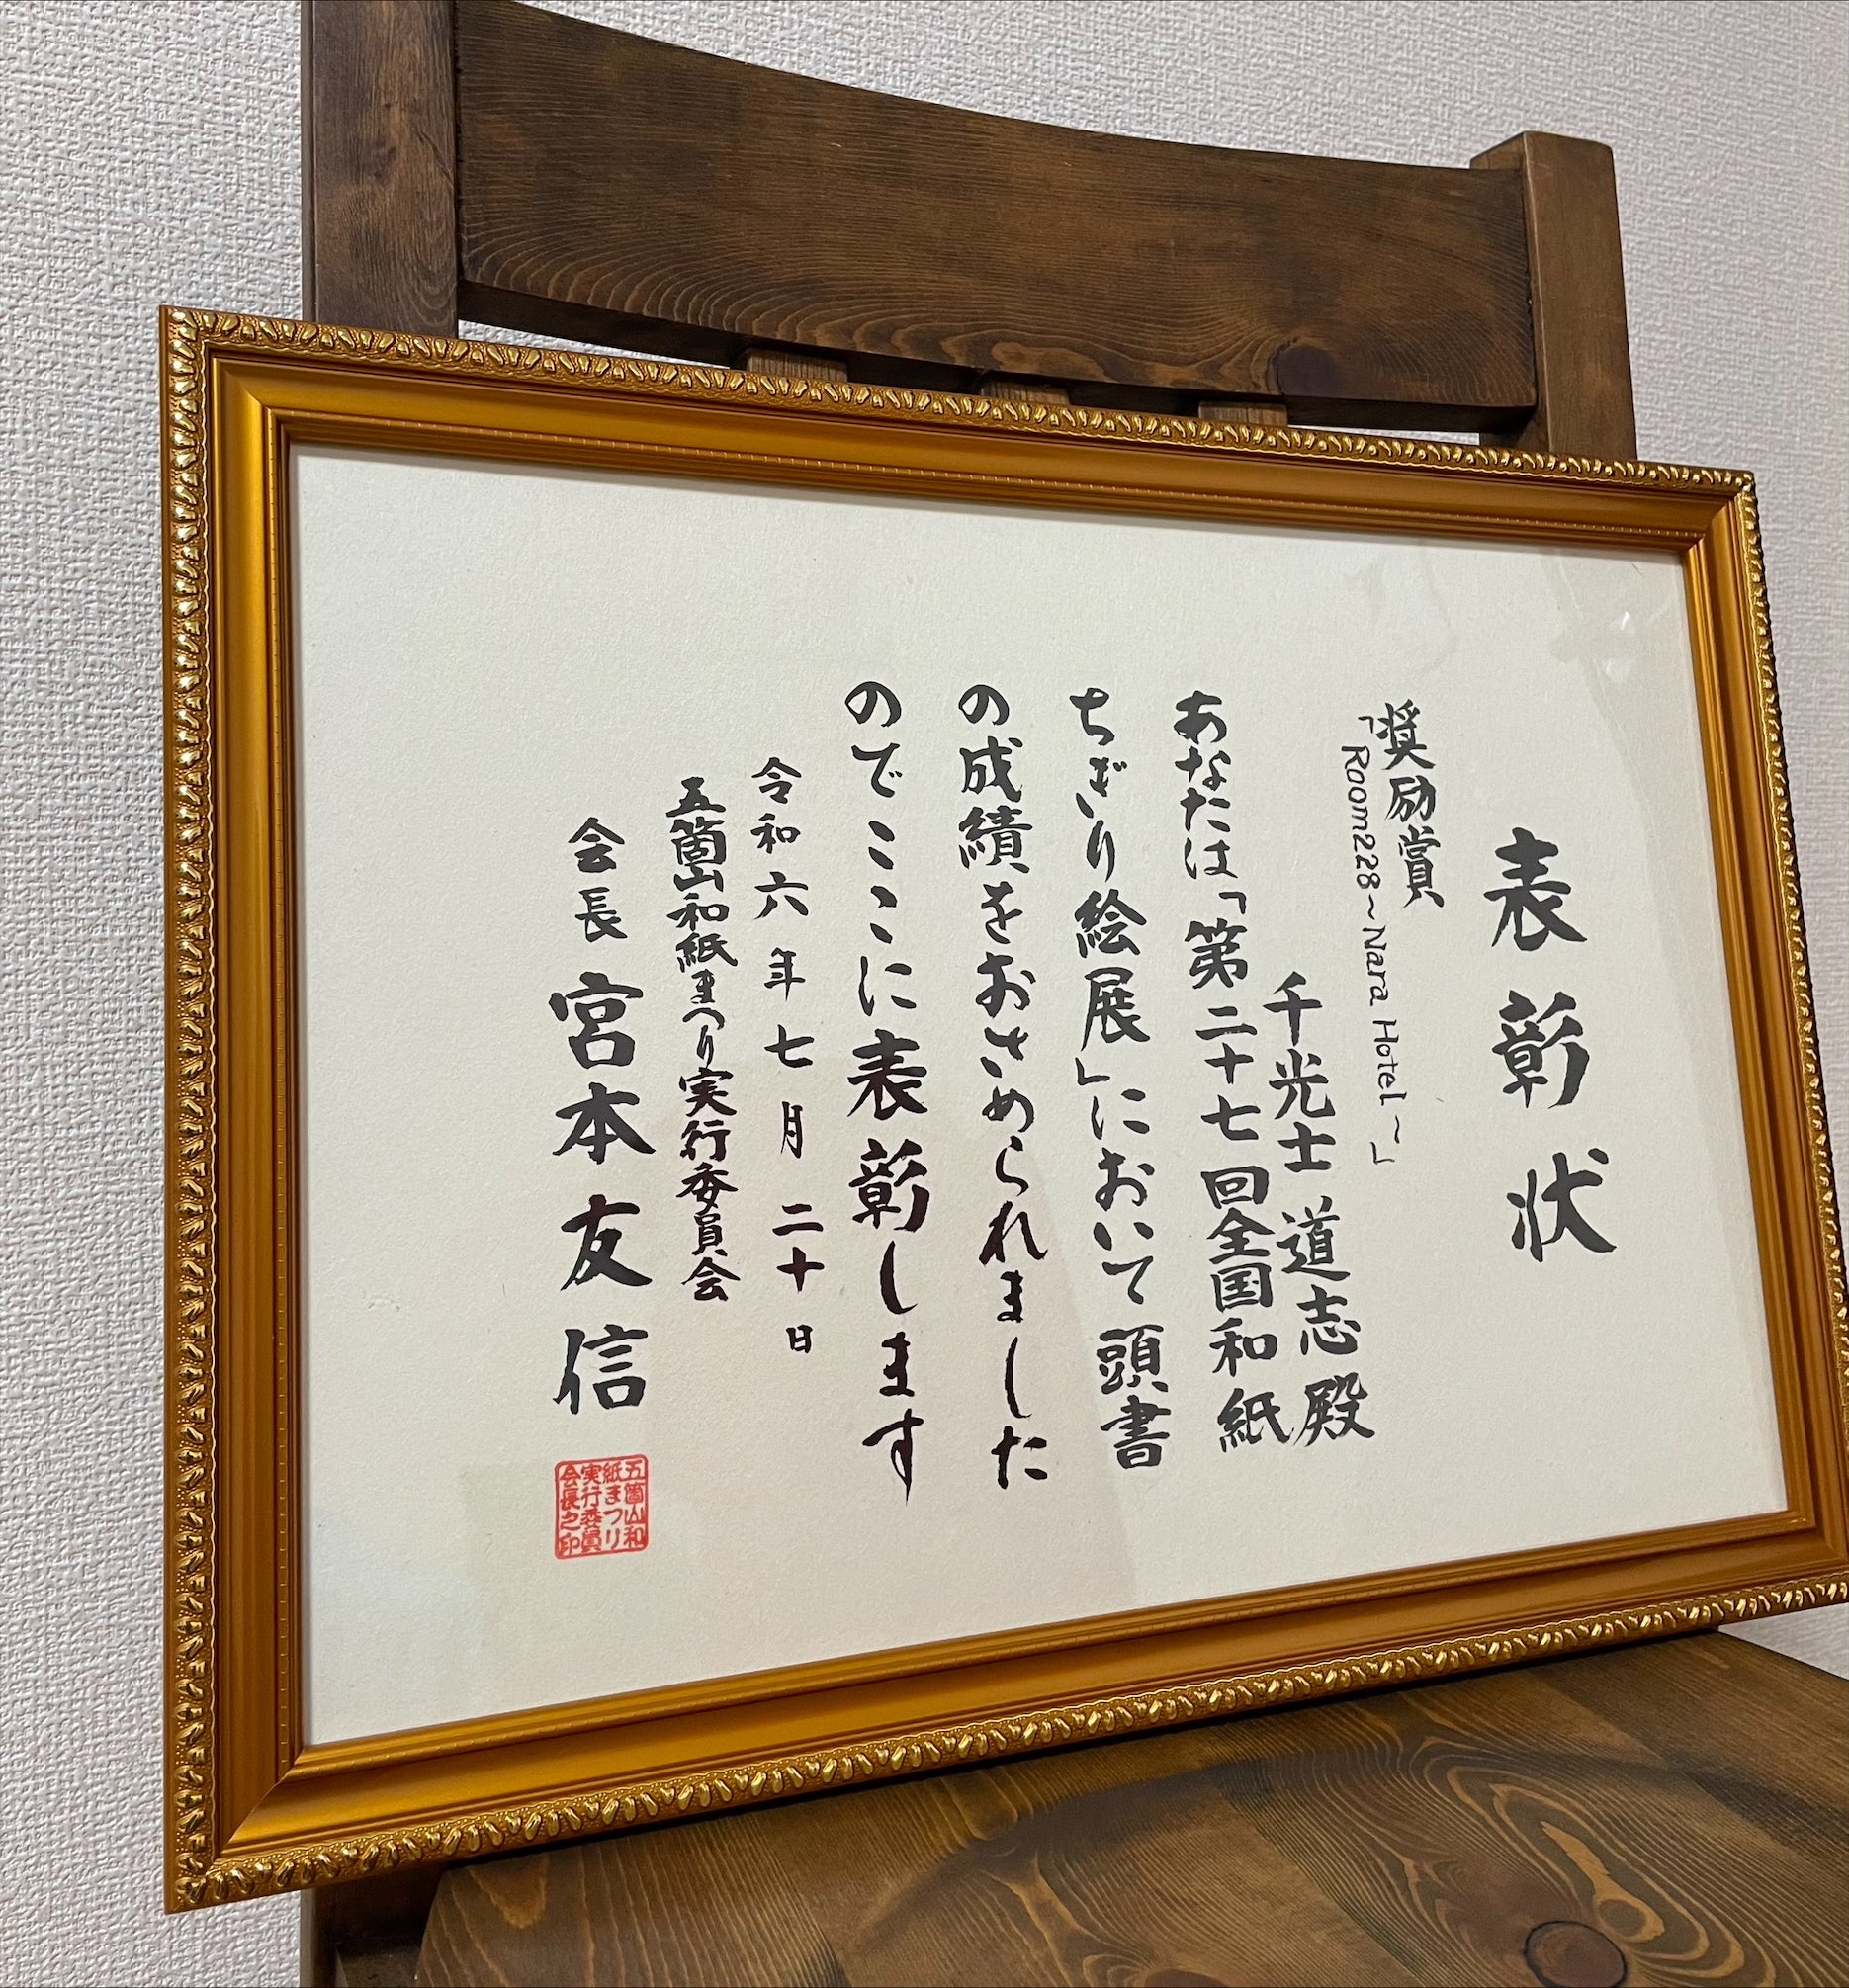 表彰状
奨励賞
「Room228~Nara Hotel~」
千光士 道志 殿
あなたは「第二十七回全国和紙
ちぎり絵展」において頭書
の成績をおさめられました
のでここに表彰します
令和六年七月二十日
五箇山和紙まつり実行委員会
会長 宮本友信
五箇山和
紙まつり
実行委員
会長之印